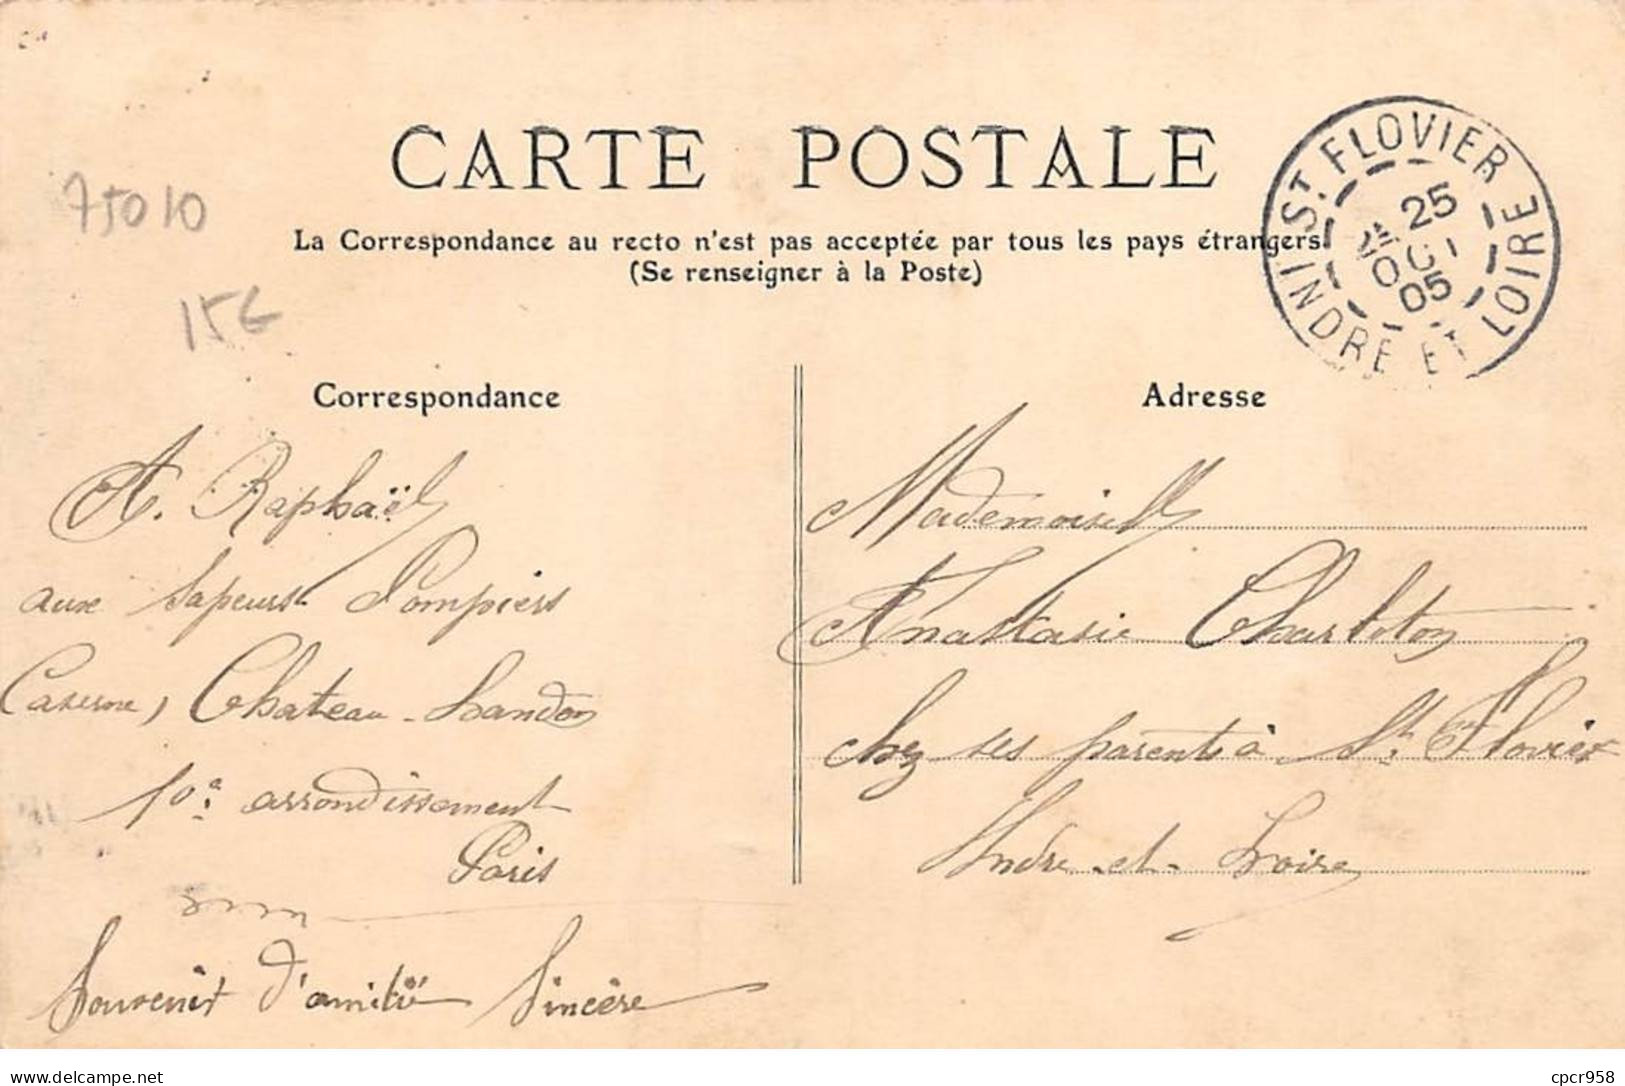 CARTE POSTALE
La Correspondance au recto n'est pas acceptée par tous les pays étrangers
(Se renseigner à la Poste)
ST. FLOVIER
25
05
INDRE ET LOIRE
75010
15€
Correspondance
A. Raphaël
aux Sapeurs Pompiers
Caserne, Chateau-Landon
10e arrondissement
Paris
Souvenir d'amitié Sincère
Adresse
Mademoiselle
Anastasie
chez ses parents à St. Flovier
Indre-et-Loire
cpcr958